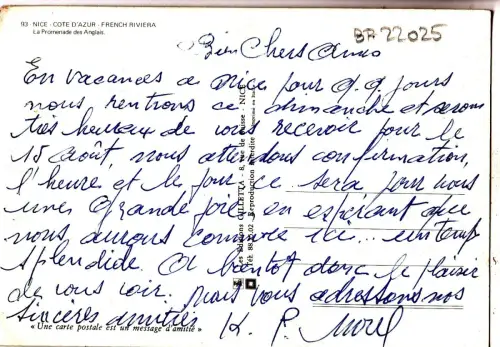 93 - NICE - COTE D'AZUR - FRENCH RIVIERA
La Promenade des Anglais.
BA 22025
Bien Chers Amis
En vacances a Nice pour q.q jours
nous rentrons ce dimanche et serons
très heureux de vous recevoir pour le
15 août, nous attendons confirmation,
l'heure et le jour ce sera pour nous
une grande joie en espérant que
nous aurons comme ici... un temps
splendide. A bientôt donc le plaisir
de vous voir. nous vous adressons nos
sincères amitiés K. P. Morel
« Une carte postale est un message d'amitié »
Les Éditions GILLETTA - 8, rue de - NICE
Reproduction interdite